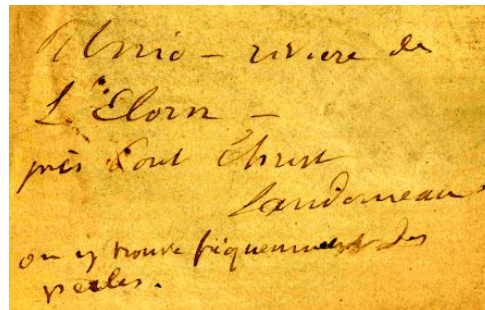 Unio – riviere de
L'Elorn –
près Pont Christ
Landerneau
on y trouve fréquemment des
perles.